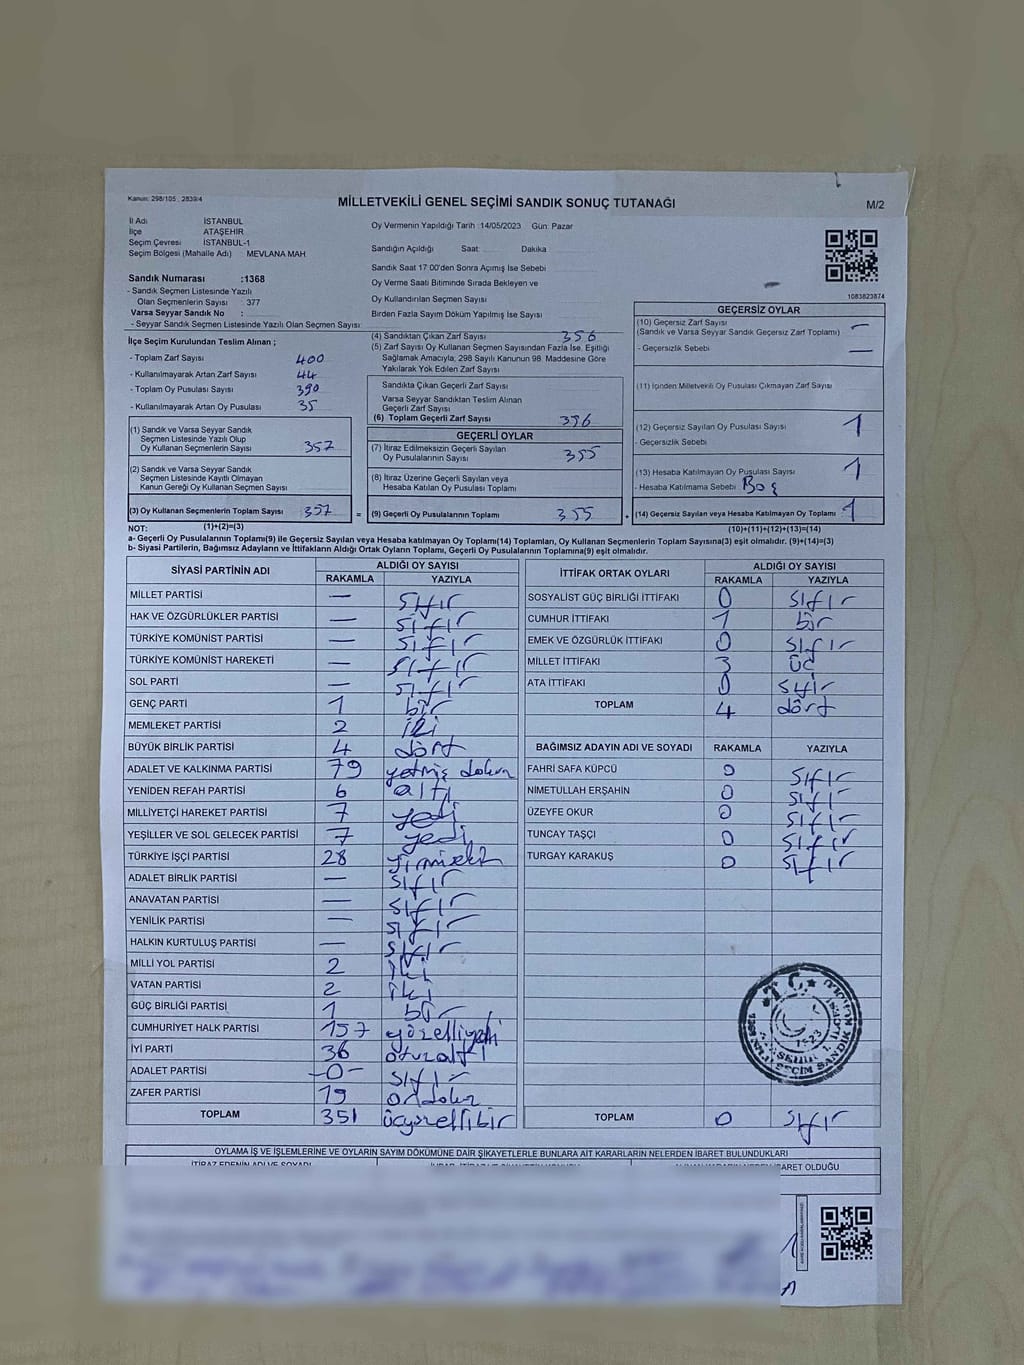 Kanun: 298/105 , 2839/4
MİLLETVEKİLİ GENEL SEÇİMİ SANDIK SONUÇ TUTANAĞI
M/2
İl Adı İSTANBUL
İlçe ATAŞEHİR
Seçim Çevresi İSTANBUL-1
Seçim Bölgesi (Mahalle Adı) MEVLANA MAH
Sandık Numarası :1368
- Sandık Seçmen Listesinde Yazılı
Olan Seçmenlerin Sayısı : 377
Varsa Seyyar Sandık No :
- Seyyar Sandık Seçmen Listesinde Yazılı Olan Seçmen Sayısı:
Oy Vermenin Yapıldığı Tarih :14/05/2023 Gün: Pazar
Sandığın Açıldığı Saat: Dakika
Sandık Saat 17:00'den Sonra Açımış İse Sebebi
Oy Verme Saati Bitiminde Sırada Bekleyen ve
Oy Kullandırılan Seçmen Sayısı
Birden Fazla Sayım Döküm Yapılmış İse Sayısı
1083823874
İlçe Seçim Kurulundan Teslim Alınan ;
- Toplam Zarf Sayısı 400
- Kullanılmayarak Artan Zarf Sayısı 44
- Toplam Oy Pusulası Sayısı 390
- Kullanılmayarak Artan Oy Pusulası 35
(1) Sandık ve Varsa Seyyar Sandık
Seçmen Listesinde Yazılı Olup
Oy Kullanan Seçmenlerin Sayısı 357
(2) Sandık ve Varsa Seyyar Sandık
Seçmen Listesinde Kayıtlı Olmayan
Kanun Gereği Oy Kullanan Seçmen Sayısı
(3) Oy Kullanan Seçmenlerin Toplam Sayısı 357 =
(4) Sandıktan Çıkan Zarf Sayısı 356
(5) Zarf Sayısı Oy Kullanan Seçmen Sayısından Fazla İse, Eşitliği
Sağlamak Amacıyla; 298 Sayılı Kanunun 98. Maddesine Göre
Yakılarak Yok Edilen Zarf Sayısı
Sandıkta Çıkan Geçerli Zarf Sayısı
Varsa Seyyar Sandıktan Teslim Alınan
Geçerli Zarf Sayısı
(6) Toplam Geçerli Zarf Sayısı 356
GEÇERLİ OYLAR
(7) İtiraz Edilmeksizin Geçerli Sayılan
Oy Pusulalarının Sayısı 355
(8) İtiraz Üzerine Geçerli Sayılan veya
Hesaba Katılan Oy Pusulası Toplamı
(9) Geçerli Oy Pusulalarının Toplamı 355 +
GEÇERSİZ OYLAR
(10) Geçersiz Zarf Sayısı —
(Sandık ve Varsa Seyyar Sandık Geçersiz Zarf Toplamı)
- Geçersizlik Sebebi —
(11) İçinden Milletvekili Oy Pusulası Çıkmayan Zarf Sayısı
(12) Geçersiz Sayılan Oy Pusulası Sayısı 1
- Geçersizlik Sebebi
(13) Hesaba Katılmayan Oy Pusulası Sayısı 1
- Hesaba Katılmama Sebebi Boş
(14) Geçersiz Sayılan veya Hesaba Katılmayan Oy Toplamı 1
NOT: (1)+(2)=(3) (10)+(11)+(12)+(13)=(14)
a- Geçerli Oy Pusulasının Toplamı(9) ile Geçersiz Sayılan veya Hesaba katılmayan Oy Toplamı(14) Toplamları, Oy Kullanan Seçmenlerin Toplam Sayısına(3) eşit olmalıdır. (9)+(14)=(3)
b- Siyasi Partilerin, Bağımsız Adayların ve İttifakların Aldığı Ortak Oyların Toplamı, Geçerli Oy Pusulasının Toplamına(9) eşit olmalıdır.
SİYASİ PARTİNİN ADI ALDIĞI OY SAYISI
RAKAMLA YAZIYLA
MİLLET PARTİSİ — sıfır
HAK VE ÖZGÜRLÜKLER PARTİSİ — sıfır
TÜRKİYE KOMÜNİST PARTİSİ — sıfır
TÜRKİYE KOMÜNİST HAREKETİ — sıfır
SOL PARTİ — sıfır
GENÇ PARTİ 1 bir
MEMLEKET PARTİSİ 2 iki
BÜYÜK BİRLİK PARTİSİ 4 dört
ADALET VE KALKINMA PARTİSİ 79 yetmiş dokuz
YENİDEN REFAH PARTİSİ 6 altı
MİLLİYETÇİ HAREKET PARTİSİ 7 yedi
YEŞİLLER VE SOL GELECEK PARTİSİ 7 yedi
TÜRKİYE İŞÇİ PARTİSİ 28 yirmisekiz
ADALET BİRLİK PARTİSİ — sıfır
ANAVATAN PARTİSİ — sıfır
YENİLİK PARTİSİ — sıfır
HALKIN KURTULUŞ PARTİSİ — sıfır
MİLLİ YOL PARTİSİ 2 iki
VATAN PARTİSİ 2 iki
GÜÇ BİRLİĞİ PARTİSİ 1 bir
CUMHURİYET HALK PARTİSİ 157 yüzelliyedi
İYİ PARTİ 36 otuzaltı
ADALET PARTİSİ -0- sıfır
ZAFER PARTİSİ 19 ondokuz
TOPLAM 351 üçyüzellibir
İTTİFAK ORTAK OYLARI ALDIĞI OY SAYISI
RAKAMLA YAZIYLA
SOSYALİST GÜÇ BİRLİĞİ İTTİFAKI 0 sıfır
CUMHUR İTTİFAKI 1 bir
EMEK VE ÖZGÜRLÜK İTTİFAKI 0 sıfır
MİLLET İTTİFAKI 3 üç
ATA İTTİFAKI 0 sıfır
TOPLAM 4 dört
BAĞIMSIZ ADAYIN ADI VE SOYADI RAKAMLA YAZIYLA
FAHRİ SAFA KÜPCÜ 0 sıfır
NİMETULLAH ERŞAHİN 0 sıfır
ÜZEYFE OKUR 0 sıfır
TUNCAY TAŞÇI 0 sıfır
TURGAY KARAKUŞ 0 sıfır
T.C.
TOPLAM 0 sıfır
OYLAMA İŞ VE İŞLEMLERİNE VE OYLARIN SAYIM DÖKÜMÜNE DAİR ŞİKAYETLERLE BUNLARA AİT KARARLARIN NELERDEN İBARET BULUNDUKLARI